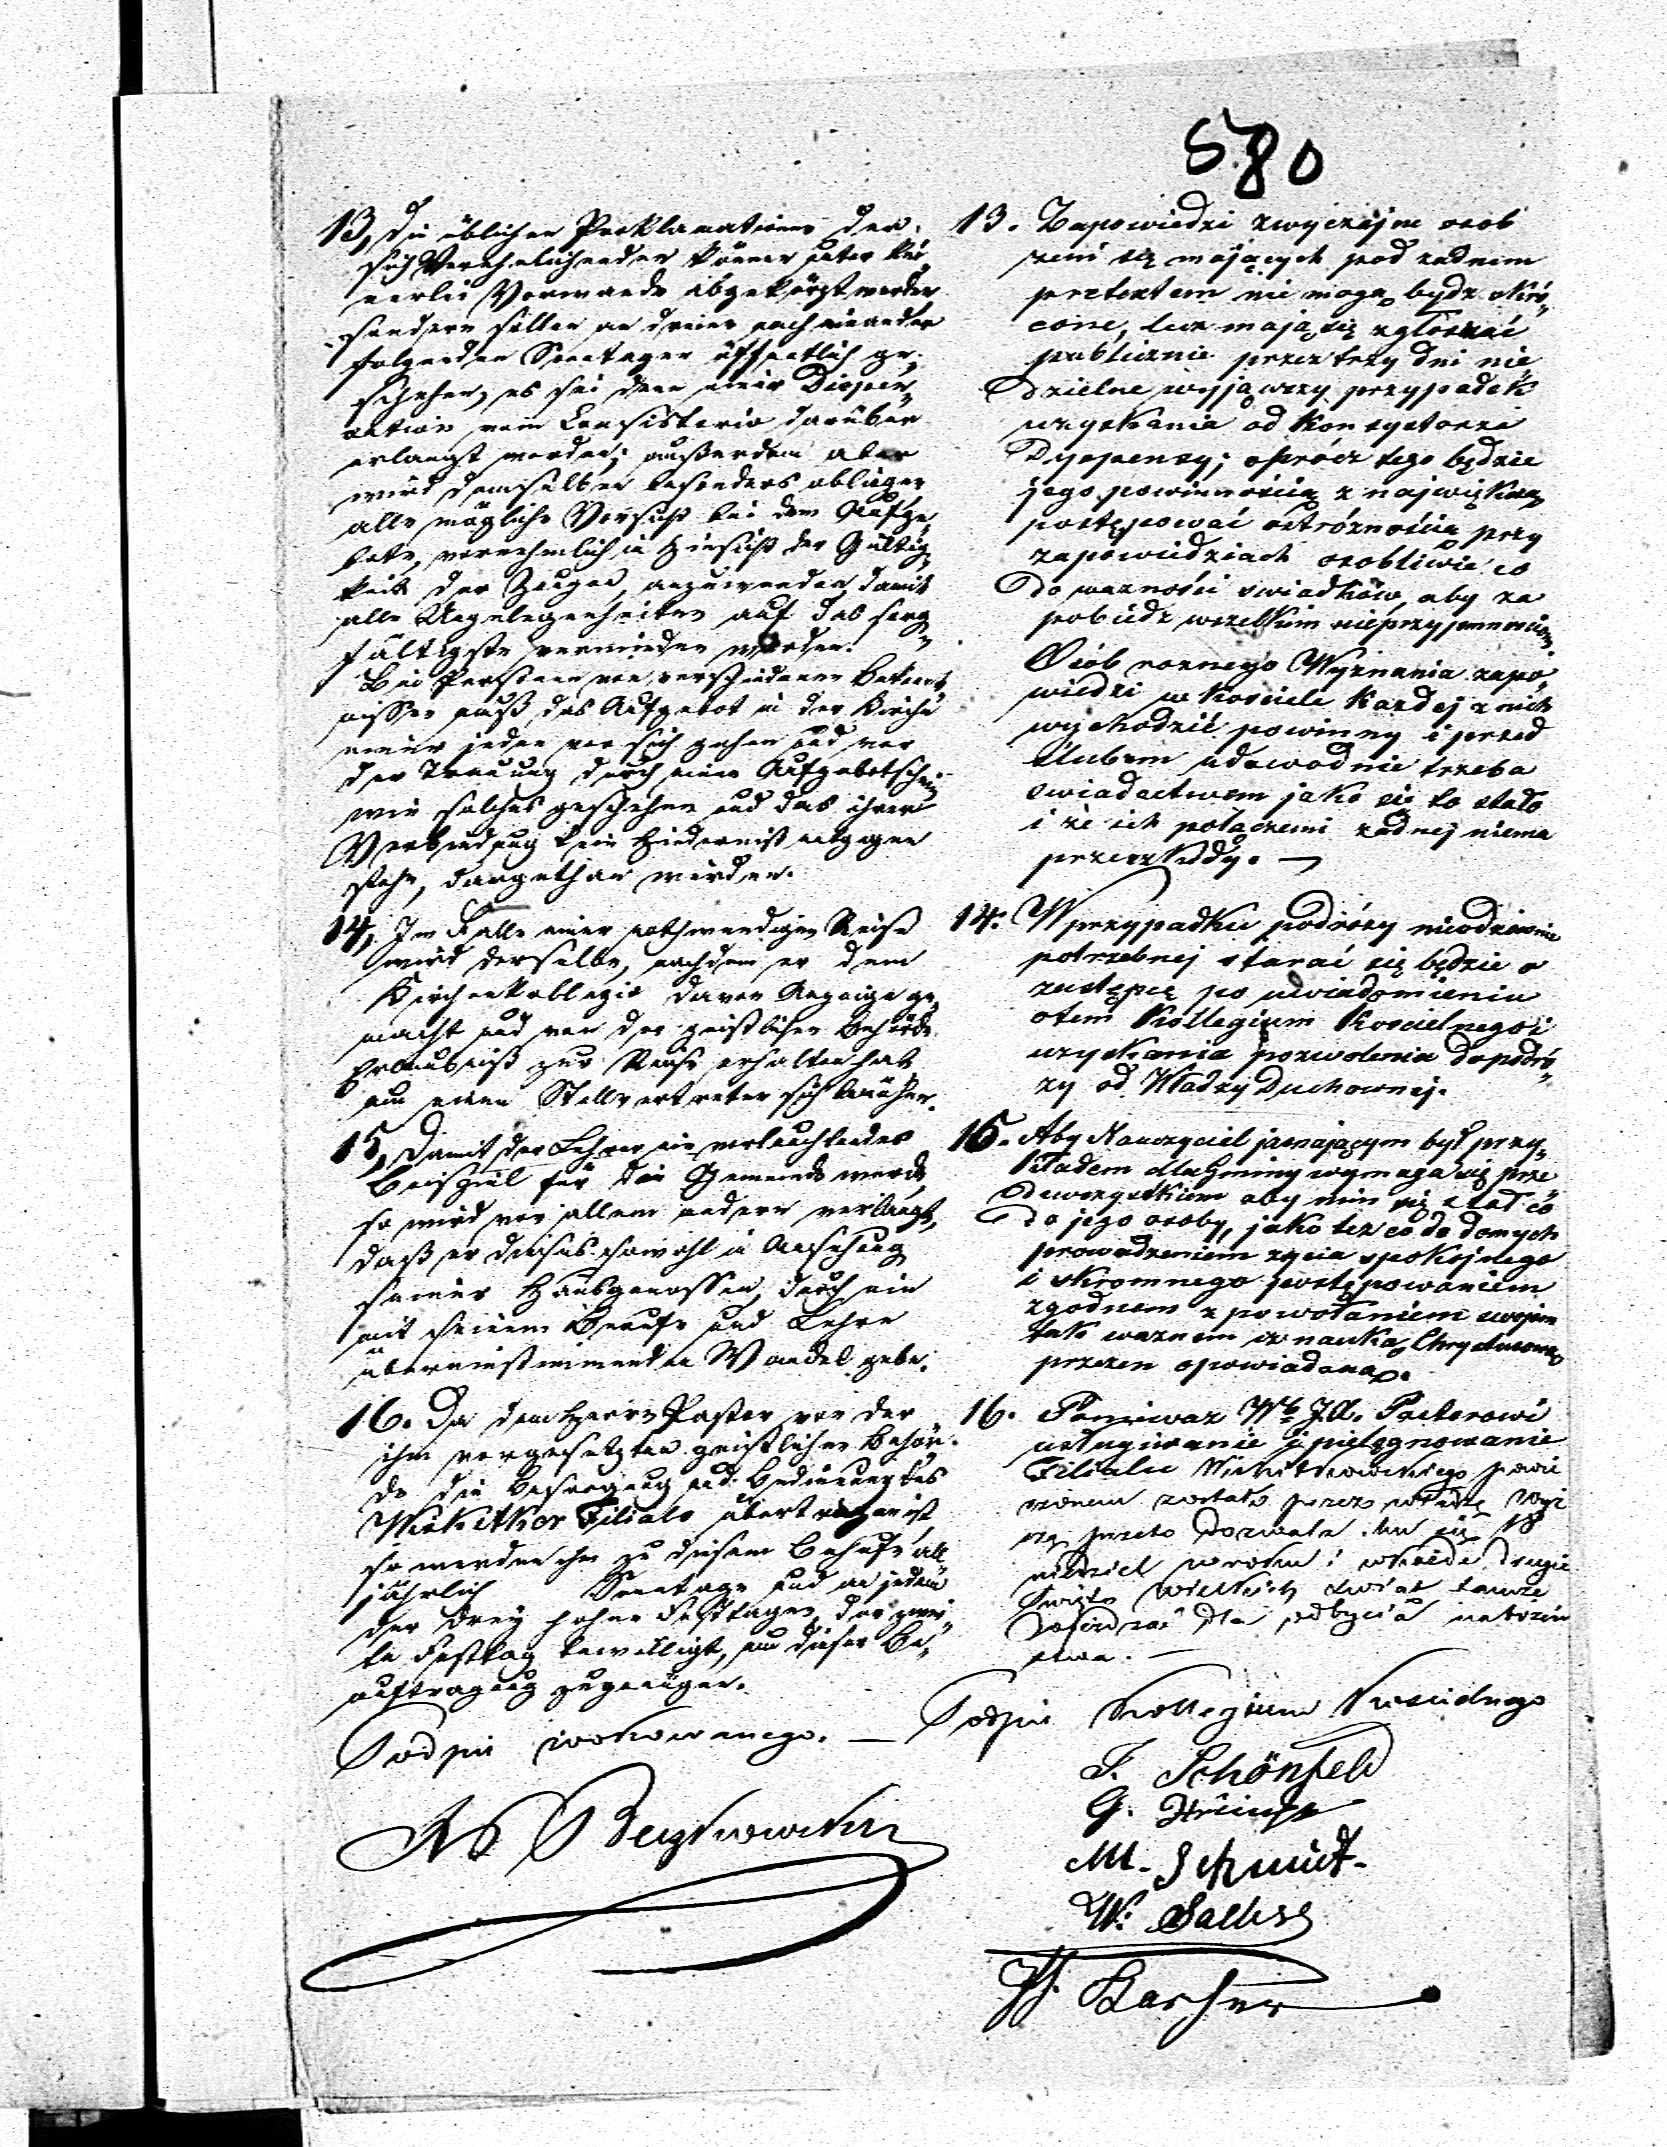 580
13, die üblichen Proklamationen der
sich Verehelichenden können unter kei„
nerlei Vorwande abgekürzt werden
sondern sollen an dreien nach einander
folgenden Sonntagen öffentlich ge„
schehen, es sei denn eine Dispen„
sation vom Consistorio darüber
erlangt worden; außerdem aber
wird demselben besonders obliegen
alle mögliche Vorsicht bei dem Aufge„
bote, vornehmlich in Hinsicht der Gültig„
keit der Zeugen anzuwenden, damit
alle Ungelegenheiten auf das sorg„
fältigste vermieden werden.
Bei Personen von verschiedenen Bekennt„
nissen muß das Aufgebot in der Kirche
eines jeden vor sich gehen und vor
der Trauung durch einen Aufgebotschein
wie solches geschehen und das ihrer
Verbindung kein Hinderniß entgegen
stehe, dargethan werden.
14, Im Falle einer nothwendigen Reise
wird derselbe, nachdem er dem
Kirchenkollegio davon Anzeige ge„
macht und von der geistlichen Behörde
Erlaubniß zur Reise erhalten hat,
um einen Stellvertreter sich bemühen.
15, Damit der Lehrer ein erleuchtendes
Beispiel für die Gemeinde werde,
so wird vor allem andern verlangt,
daß er dieses sowohl in Ansehung
seiner Hausgenossen, durch ein
mit seinem Berufe und Lehre
übereinstimmenden Wandel gebe.
16. Da dem Herrn Pastor von der
ihm vorgesetzten geistlichen Behör„
de die Besorgung und Bedienung des
Wiskitker Filials übertragen ist,
so werden ihm zu diesem Behufe all„
jährlich Sonntage und an jedem
der drey hohen Festtagen, der zwei„
te Festtag bewilligt, um dieser Be„
auftragung zu genügen.
Podpis wokowanego. —
13. Zapowiedzi zwyczajne osob
żenić się mających pod żadnem
pretextem nie mogą bydź skró„
cone, lecz mają się zgłaszać
publicznie przez trzy dni nie„
dzielne wyjąwszy przypadek
uzyskania od Konsystorza
Dyspensy; oprócz tego będzie
jego powinnością z największą
postępować ostróżnością przy
zapowiedziach osobliwie co
do ważności swiadków, aby za
pobiedz wszelkim nieprzyjemnościom.
Osób roznego Wyznania zapo„
wiedzi w Kosciele Kazdej z nich
wychodzić powinny i przed
slubem udowodnie trzeba
swiadectwem jako się to stało
i że ich połączeniu żadnej niema
przeszkody. —
14. W przypadku podróży nieodzownie
potrzebnej starać się będzie o
zastępcę po uwiadomieniu
otem Kollegium Koscielnego i
uzyskania pozwolenia do podró„
zy od Władzy Duchownej.
15. Aby Nauczyciel jasnającym był przy„
kładem dla Gminy wymaga się prze
dewszystkiem aby nim się stał co
do jego osoby, jako tez co do domych
prowadzeniem zycia spokojnego
i skromnego postępowaniem
zgodnem z powołaniem swojem
tak waznem i z nauką Chrystusową
przezen opowiadaną.
16. Poniewaz W. J. X. Pastorowi
usługiwanie i pielęgnowanie
Filialu Wiskitkowskiego powie
rzonem zostało przez władzę wyż
szą przeto dozwala mu się 13
niedziel w roku i w każde drugie
święto wielkich świat tamże
dojeżdzać dla odbycia nabożeń
stwa. —
Podpis Kollegium Koscielnego
J. Schönfeld
G.
M. Schmidt.
W.